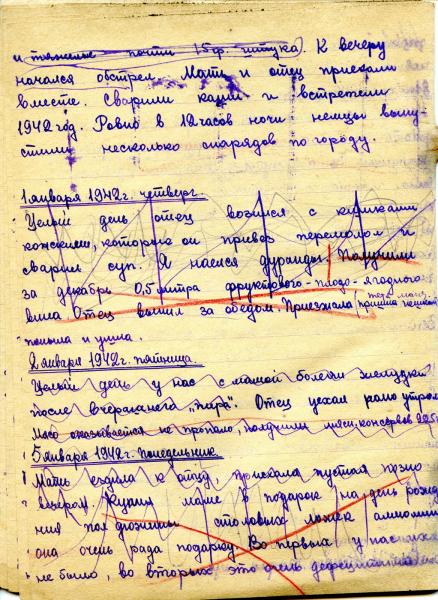 и тяжелые почти 15 ф. штука. К вечеру
начался обстрел. Мать и отец приехали
вместе. Сварили каши и встретели
1942 год. Ровно в 12 часов ночи немцы выпу-
стили несколько снарядов по городу.
1 января 1942 г. четверг.
Целый день отец возился с кишками
кожскими, которые он привез перемолол и
сварил суп. Я наелся дуранды. Получили
за декабрь 0,5 литра фруктового-плодо-ягодного
вина. Отец выпил за обедом. Приезжала
пешком и ушла.
2 января 1942 г. пятница.
Целый день у нас с мамой болели желудки
после вчерашнего "пира". Отец уехал рано утром.
Мясо оказывается не пропало, получили мясн. консервов
5 января 1942 г. понедельник.
Мать ездила к отцу, приехала пустая поздно
вечером. Купил маме в подарок на день рожде-
ния пол дюжины столовых ложек
она очень рада подарку. Во первых у нас их
не было, во вторых это очень